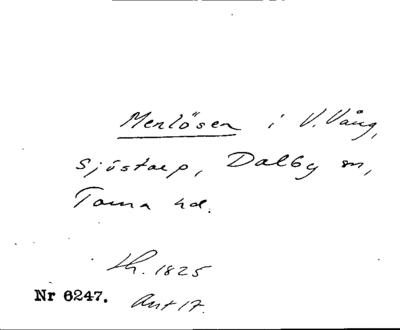 Menlösen i V. Vång,
Sjöstorp, Dalby sn,
Torna hd.
Lh. 1825
Nr 6247. Ant 17.